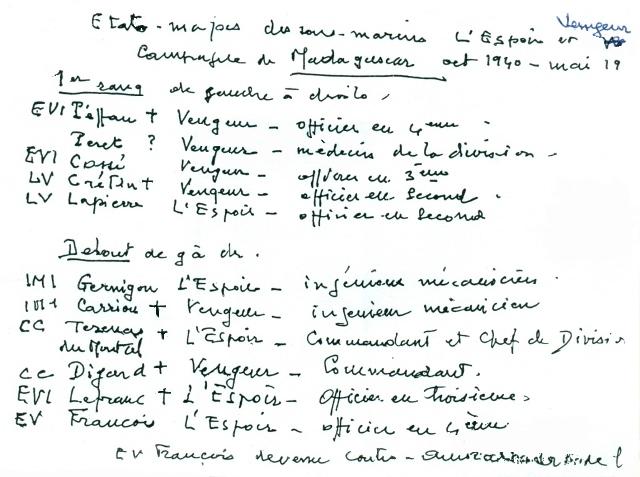 Etats-majors des sous-marins L'Espoir et Vengeur
Campagne de Madagascar oct 1940 - mai 19
1er rang de gauche à droite,
EV1 + Vengeur - officier en 4eme
Peret ? Vengeur - médecin de la division -
EV1 Cassé Vengeur - officier en 3eme
LV Crétin + Vengeur - officier en second.
LV Lapierre L'Espoir - officier en second
Debout de g à dr.
IM1 Gernigon L'Espoir - ingénieur mécanicien
IM1 Carriou + Vengeur - ingénieur mécanicien
CC Tezenas du Montcel + L'Espoir - Commandant et Chef de Divisio
CC Digard + Vengeur - Commandant.
EV1 Lefranc + L'Espoir - officier en troisieme
EV François L'Espoir - officier en 4ème
EV François devenu contre - de l